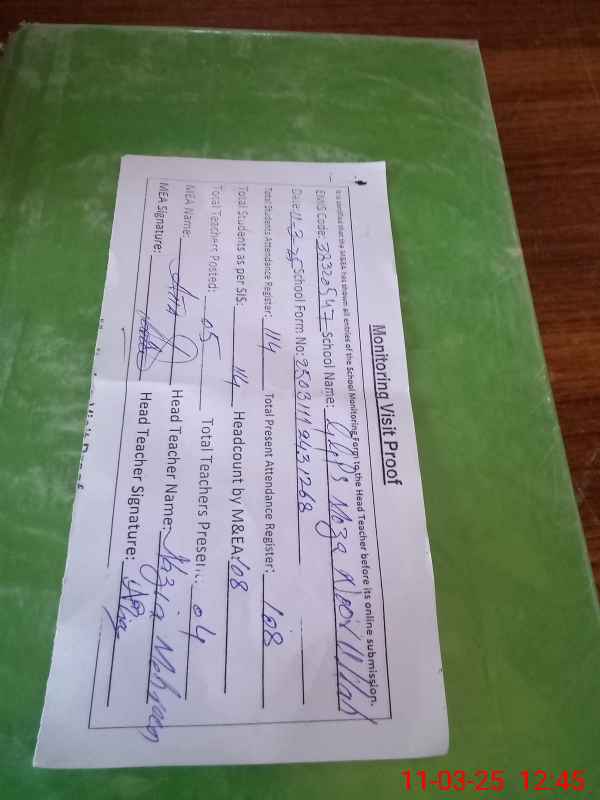 Monitoring Visit Proof
It is certified that the M&EA has shown all entries of the School Monitoring Form to the Head Teacher before its online submission.
EMIS Code: 32320547 School Name: GGPS Moza Noor Ullah
Date: 11-3-25 School Form No:
Total Students Attendance Register: 114 Total Present Attendance Register: 108
Total Students as per SIS: 114 Headcount by M&EA: 108
Total Teachers Posted: 05 Total Teachers Present: 04
MEA Name: Head Teacher Name: Nazia
MEA Signature: Head Teacher Signature:
11-03-25 12:45